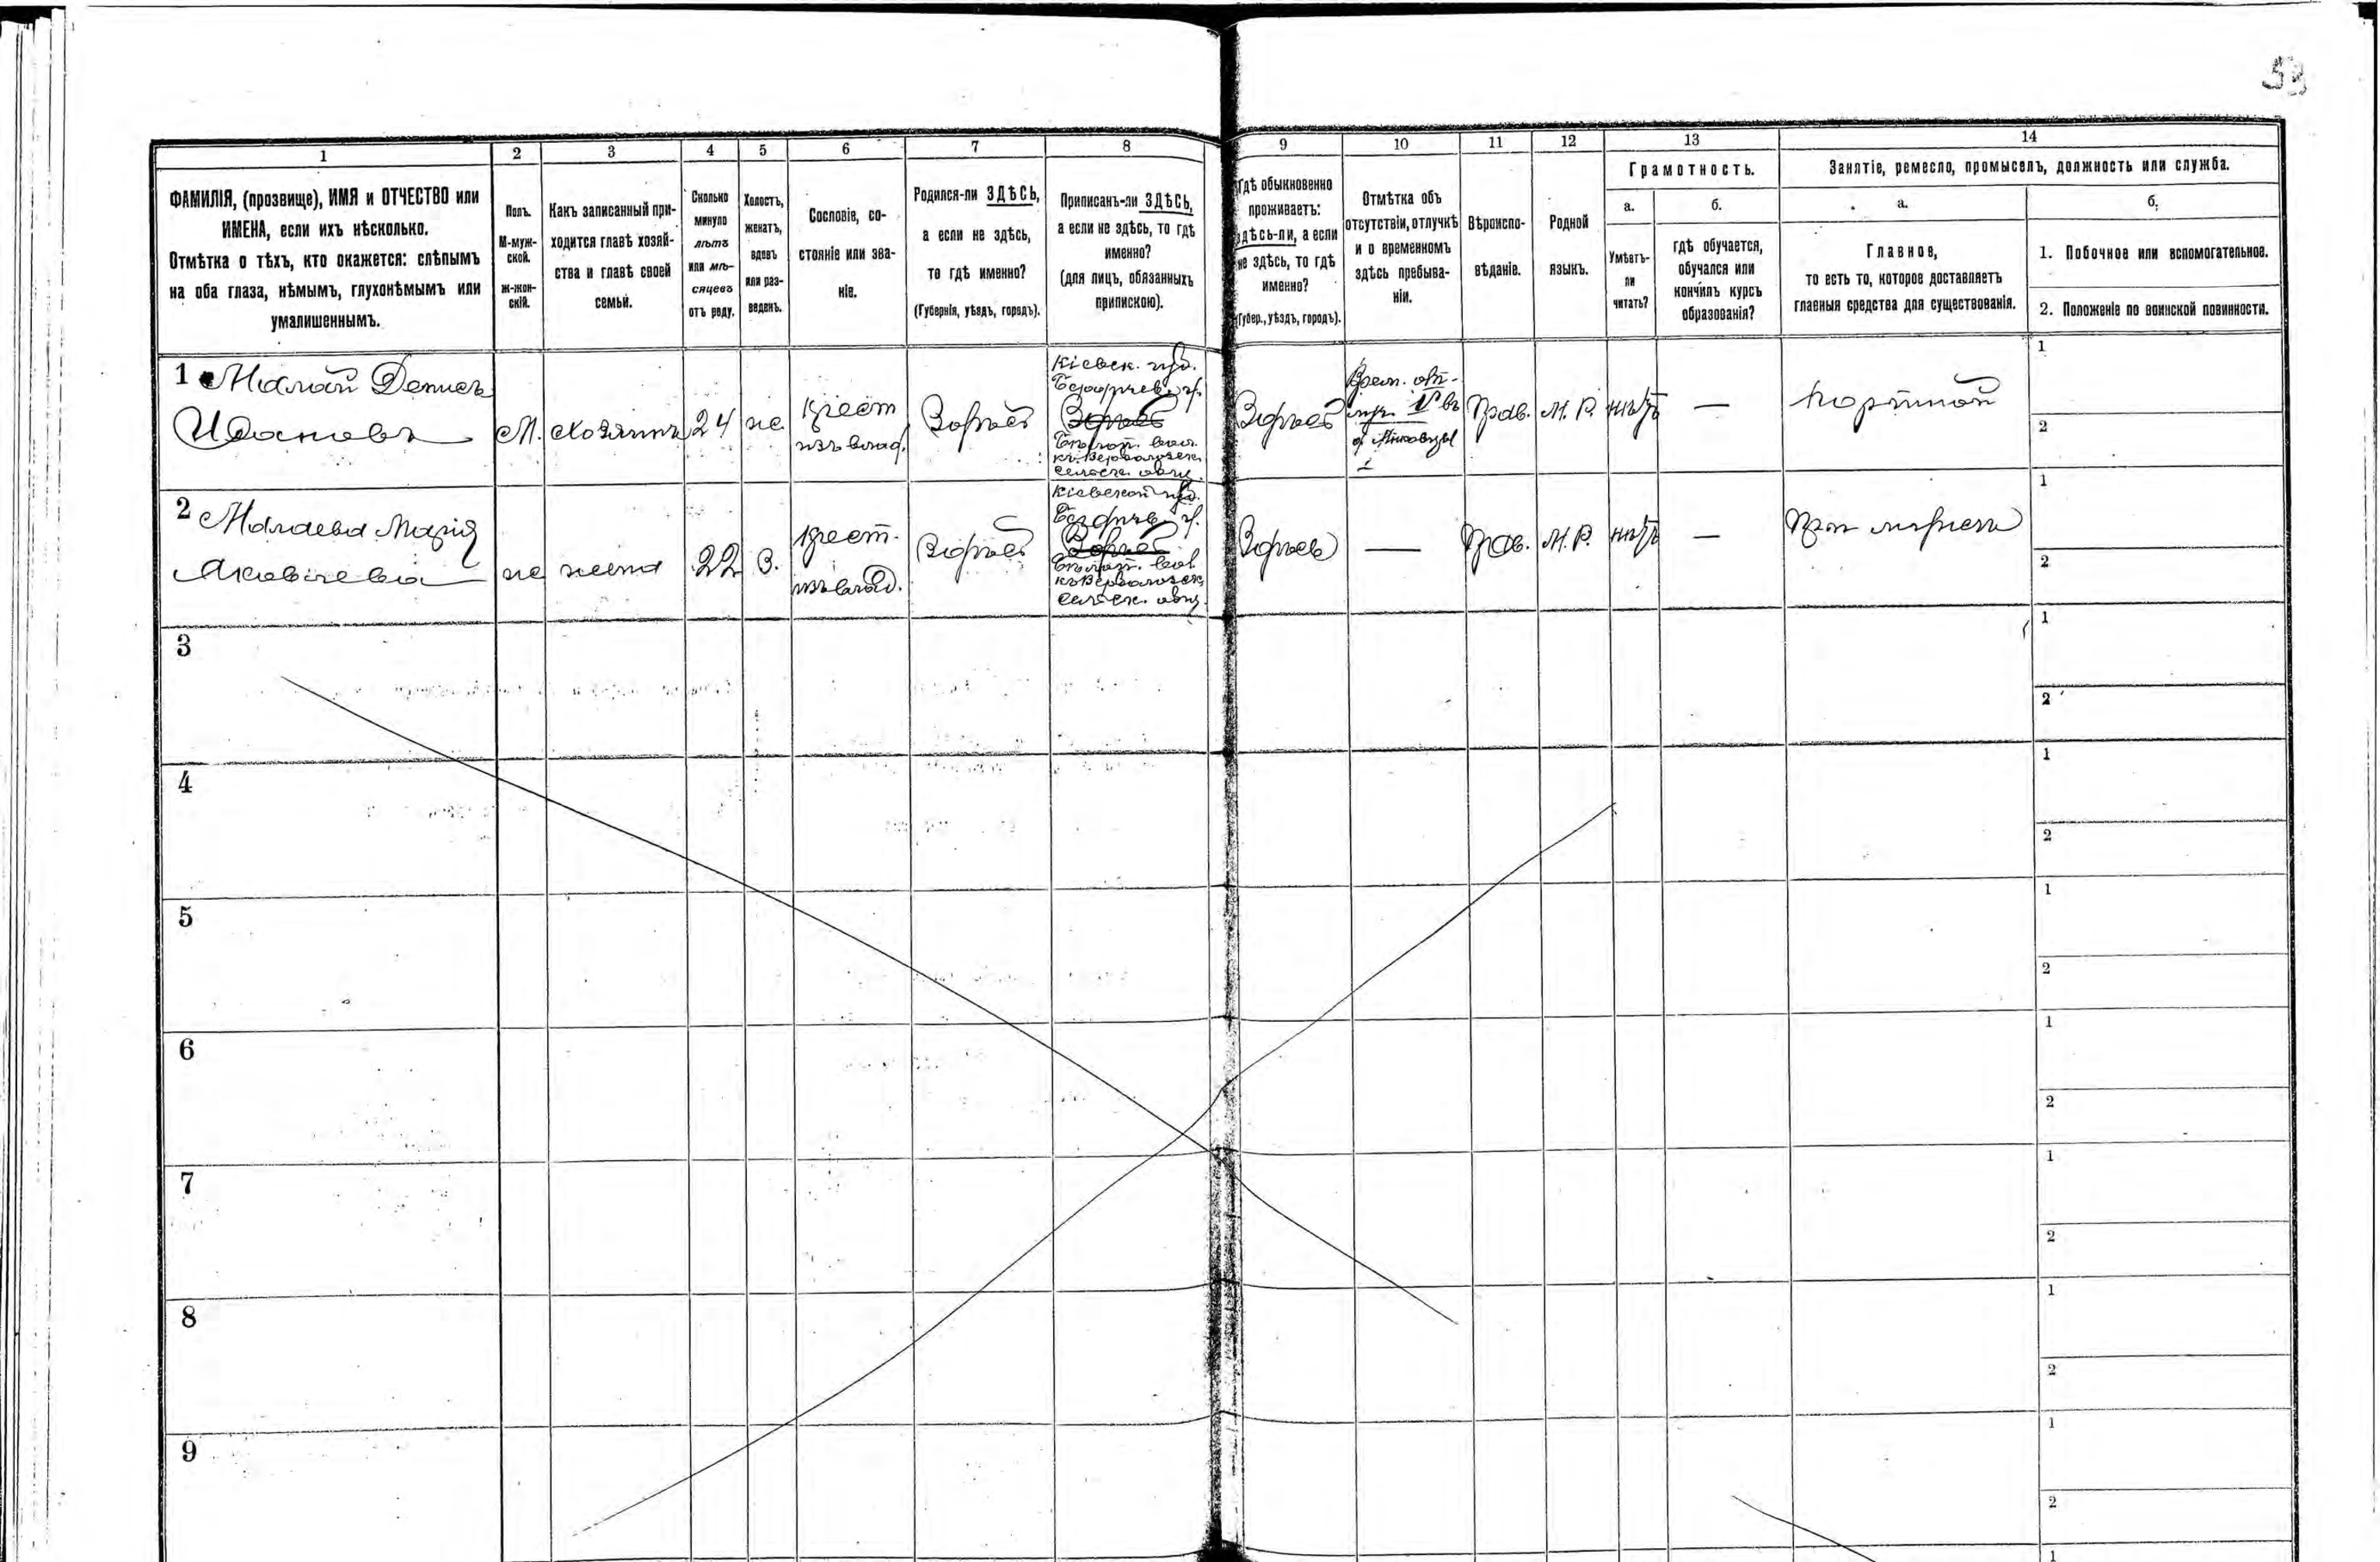 53
1 2 3 4 5 6 7 8 9 10 11 12 13 14
ФАМИЛІЯ, (прозвище), ИМЯ и ОТЧЕСТВО или
ИМЕНА, если ихъ нѣсколько.
Отмѣтка о тѣхъ, кто окажется: слѣпымъ
на оба глаза, нѣмымъ, глухонѣмымъ или
умалишеннымъ.
Полъ.
М-муж-
ской.
ж-жен-
скій.
Какъ записанный при-
ходится главѣ хозяй-
ства и главѣ своей
семьи.
Сколько
минуло
лѣтъ
или мѣ-
сяцевъ
отъ роду.
Холостъ,
женатъ,
вдовъ
или раз-
веденъ.
Сословіе, со-
стояніе или зва-
ніе.
Родился-ли ЗДѢСЬ,
а если не здѣсь,
то гдѣ именно?
(Губернія, уѣздъ, городъ).
Приписанъ-ли ЗДѢСЬ,
а если не здѣсь, то гдѣ
именно?
(для лицъ, обязанныхъ
припискою).
Гдѣ обыкновенно
проживаетъ:
здѣсь-ли, а если
не здѣсь, то гдѣ
именно?
(Губер., уѣздъ, городъ).
Отмѣтка объ
отсутствіи, отлучкѣ
и о временномъ
здѣсь пребыва-
ніи.
Вѣроиспо-
вѣданіе.
Родной
языкъ.
Грамотность.
а.
Умѣетъ-
ли
читать?
б.
гдѣ обучается,
обучался или
кончилъ курсъ
образованія?
Занятіе, ремесло, промыселъ, должность или служба.
а.
Главное,
то есть то, которое доставляетъ
главныя средства для существованія.
б.
1. Побочное или вспомогательное.
2. Положеніе по воинской повинности.
1 Малай Денисъ
Ивановъ
М.
хозяинъ
24
же
крест
изъ влад.
Здѣсь
Кіевск. губ.
Бердичев. у.
Здѣсь
сельск. общ.
Здѣсь
Врем. от-
Прав.
М. Р.
нѣтъ
—
Портной
1
2
2 Малаева Марія
Яковлева
же
жена
22
З.
крест.
изъ влад.
Здѣсь
Кіевской губ.
Бердичев. у.
Здѣсь
сельск. общ.
Здѣсь
—
Прав.
М. Р.
нѣтъ
—
При мужѣ
1
2
3
1
2
4
1
2
5
1
2
6
1
2
7
1
2
8
1
2
9
1
2
1